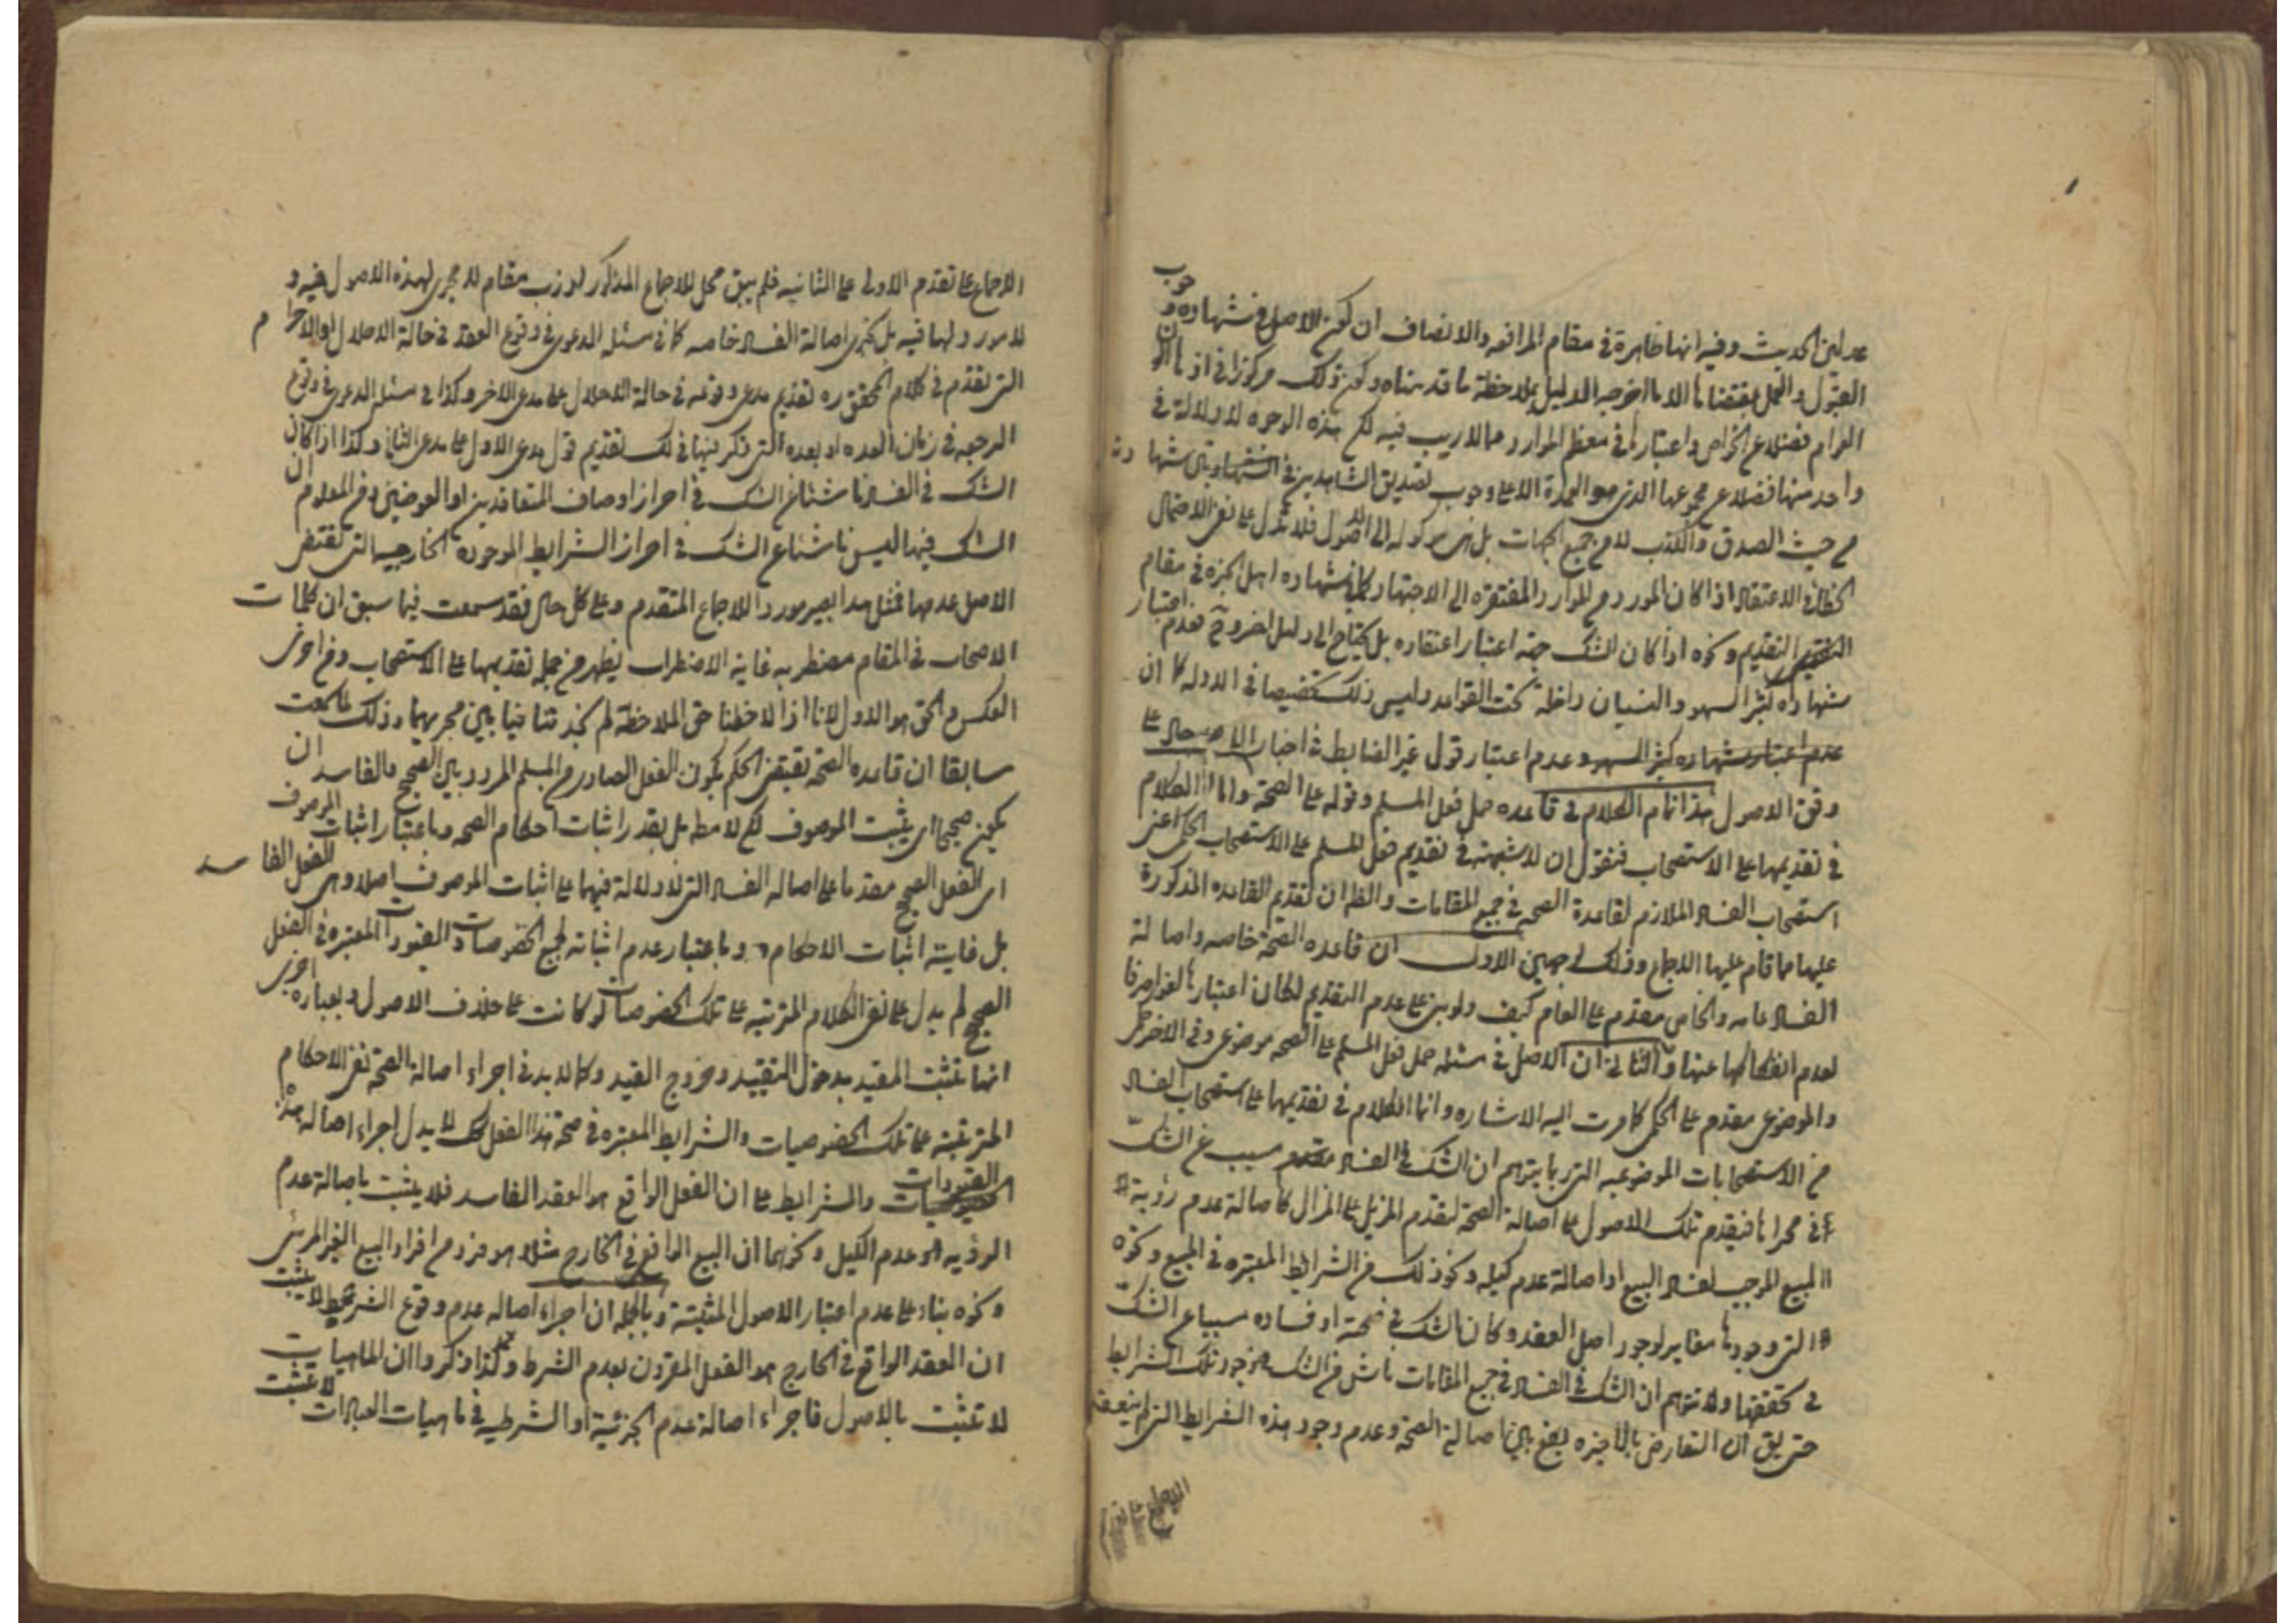 عدلين الحديث وفيه انها ظاهرة في مقام المرافعه والانصاف ان كون الاصل في شهاده و
جوب
القبول والعمل بمقتضاها الا ما اخرجه الدليل بملاحظة ما قدمناه وكون ذلك مركوزا في اذهان
العوام فضلا عن الخواص واعتبارها في معظم الموارد مما لا ريب فيه لكن هذه الوجوه لا دلالة في
واحد منها فضلا عن مجموعها الذي هو العمدة الا على وجوب تصديق الشاهدين في
من حيث الصدق والكذب لا من جميع الجهات بل هي موكوله الى الاصول فلا تدل على نفي الاحتمال
الخطأ في الاعتقاد اذا كان المورد من الموارد المفتقره الى الاجتهاد كما في شهاده اهل الخبره في مقام
التقديم ونحوه اذا كان الشك جهة اعتبار اعتقاده بل يحتاج الى دليل اخر وح فعدم اعتبار
شهاده كثير السهو والنسيان داخلة تحت القواعد وليس ذلك تخصيصا في الادله كما ان
عدم اعتبار شهاده كثير السهو وعدم اعتبار قول غير الضابط في اخبار الاحاد على
وفق الاصول هذا تمام الكلام في قاعده حمل فعل المسلم وقوله على الصحة واما الكلام
في تقديمها على الاستصحاب فنقول ان لا شبهة في تقديم فعل المسلم على الاستصحاب الحكمي اعني
استصحاب الفساد الملازم لقاعدة الصحه في جميع المقامات والظ ان تقديم القاعده المذكورة
عليها مما قام عليها الاجماع وذلك لوجهين الاول ان قاعده الصحة خاصه واصالة
الفساد عامه والخاص مقدم على العام كيف ولو بنى على عدم التقديم لكان اعتبارها لغوا صرفا
لعدم انفكاكها عنها والثاني ان الاصل في مسئله حمل فعل المسلم على الصحه موضوعي وفي الاخر حكمي
والموضوعي مقدم على الحكمي كما مرت اليه الاشاره وانما الكلام في تقديمها على استصحاب الفساد
من الاستصحابات الموضوعيه التي ربما يتوهم ان الشك في الفساد مسبب عن الشك
في مجراها فيقدم تلك الاصول على اصالة الصحة لتقدم المزيل على المزال كاصالة عدم رؤية
المبيع الموجب لفساد البيع او اصالة عدم كيله ونحو ذلك من الشرايط المعتبره في المبيع ونحوه
التي وجودها مغاير لوجود اصل العقد وكان الشك في صحة او فساده مسببا عن الشك
في تحققها ولا تتوهم ان الشك في الفساد في جميع المقامات ناش من الشك في وجود تلك الشرايط
حتى يق ان التعارض بالاخره يقع بين اصالة الصحة وعدم وجود هذه الشرايط التي
الاجماع على تقدم
الاجماع على تقدم الاولى على الثانيه فلم يبق محل للاجماع المذكور لو زب مقام لا مجرى لهذه الاصول فيه و
لا مورد لها فيه بل تجري اصالة الفساد خاصه كما في مسئله الدعوى في وقوع العقد في حالة الاحلال او الاحرام
التي تقدم في كلام المحقق ره تقديم مدعي وقوعه في حالة الاحلال على مدعي الاخر وكذا في مسئله الدعوى في وقوع
الرجعه في زمان العده او بعده التي ذكر فيها في لك تقديم قول مدعي الاول على مدعي الثاني وكذا اذا كان
الشك في الفساد ناشئا عن الشك في احراز اوصاف المتعاقدين او العوضين ومن المعلوم ان
الشك فيها ليس ناشئا عن الشك في احراز الشرايط الموجوده الخارجيه التي تقتضي
الاصل عدمها فمثل هذا يصير موردا للاجماع المتقدم وعلى كل حال فقد سمعت فيما سبق ان كلمات
الاصحاب في المقام مضطربه غاية الاضطراب يظهر من جمله تقديمها على الاستصحاب ومن اخرى
العكس والحق هو الاول لانا اذا لاحظنا حق الملاحظة لم نجد تنافيا بين مجريهما وذلك لما سمعت
سابقا ان قاعده الصحة تقتضي الحكم بكون الفعل الصادر من المسلم المردد بين الصحيح والفاسد ان
يكون صحيحا اي يثبت الموصوف لكن لا مط بل بقدر اثبات احكام الصحه وباعتبار اثبات الموصوف
اي الفعل الصحيح مقدما على اصالة الفساد التي لا دلالة فيها على اثبات الموصوف اصلا وهي الفعل الفاسد
بل غايته اثبات الاحكام وباعتبار عدم اثباته لجميع الخصوصيات والقيودات المعتبره في الفعل
الصحيح لم يدل على نفي الكلام المترتبه على تلك الخصوصيات لو كانت على خلاف الاصول وبعباره اخرى
انما تثبت المقيد بدخول التقييد وخروج القيد وكما لابد في اجراء اصالة الصحة نفي الاحكام
المترتبه على تلك الخصوصيات والشرايط المعتبره في صحة هذا الفعل كك لا يدل اجراء اصالة هذا
القيودات والشرايط على ان الفعل الواقع هو العقد الفاسد فلا يثبت باصالة عدم
الرؤيه او عدم الكيل ونحوهما ان البيع الواقع في الخارج مثلا هو فرد من افراد البيع الغير المرئي
ونحوه بناء على عدم اعتبار الاصول المثبتة وبالجمله ان اجراء اصالة عدم وقوع الشرط لا يثبت
ان العقد الواقع في الخارج هو الفعل المقرون بعدم الشرط وكذا ذكروا ان الماهيات
لا تثبت بالاصول فاجراء اصالة عدم الجزئية او الشرطيه في ماهيات العبادات لا تثبت